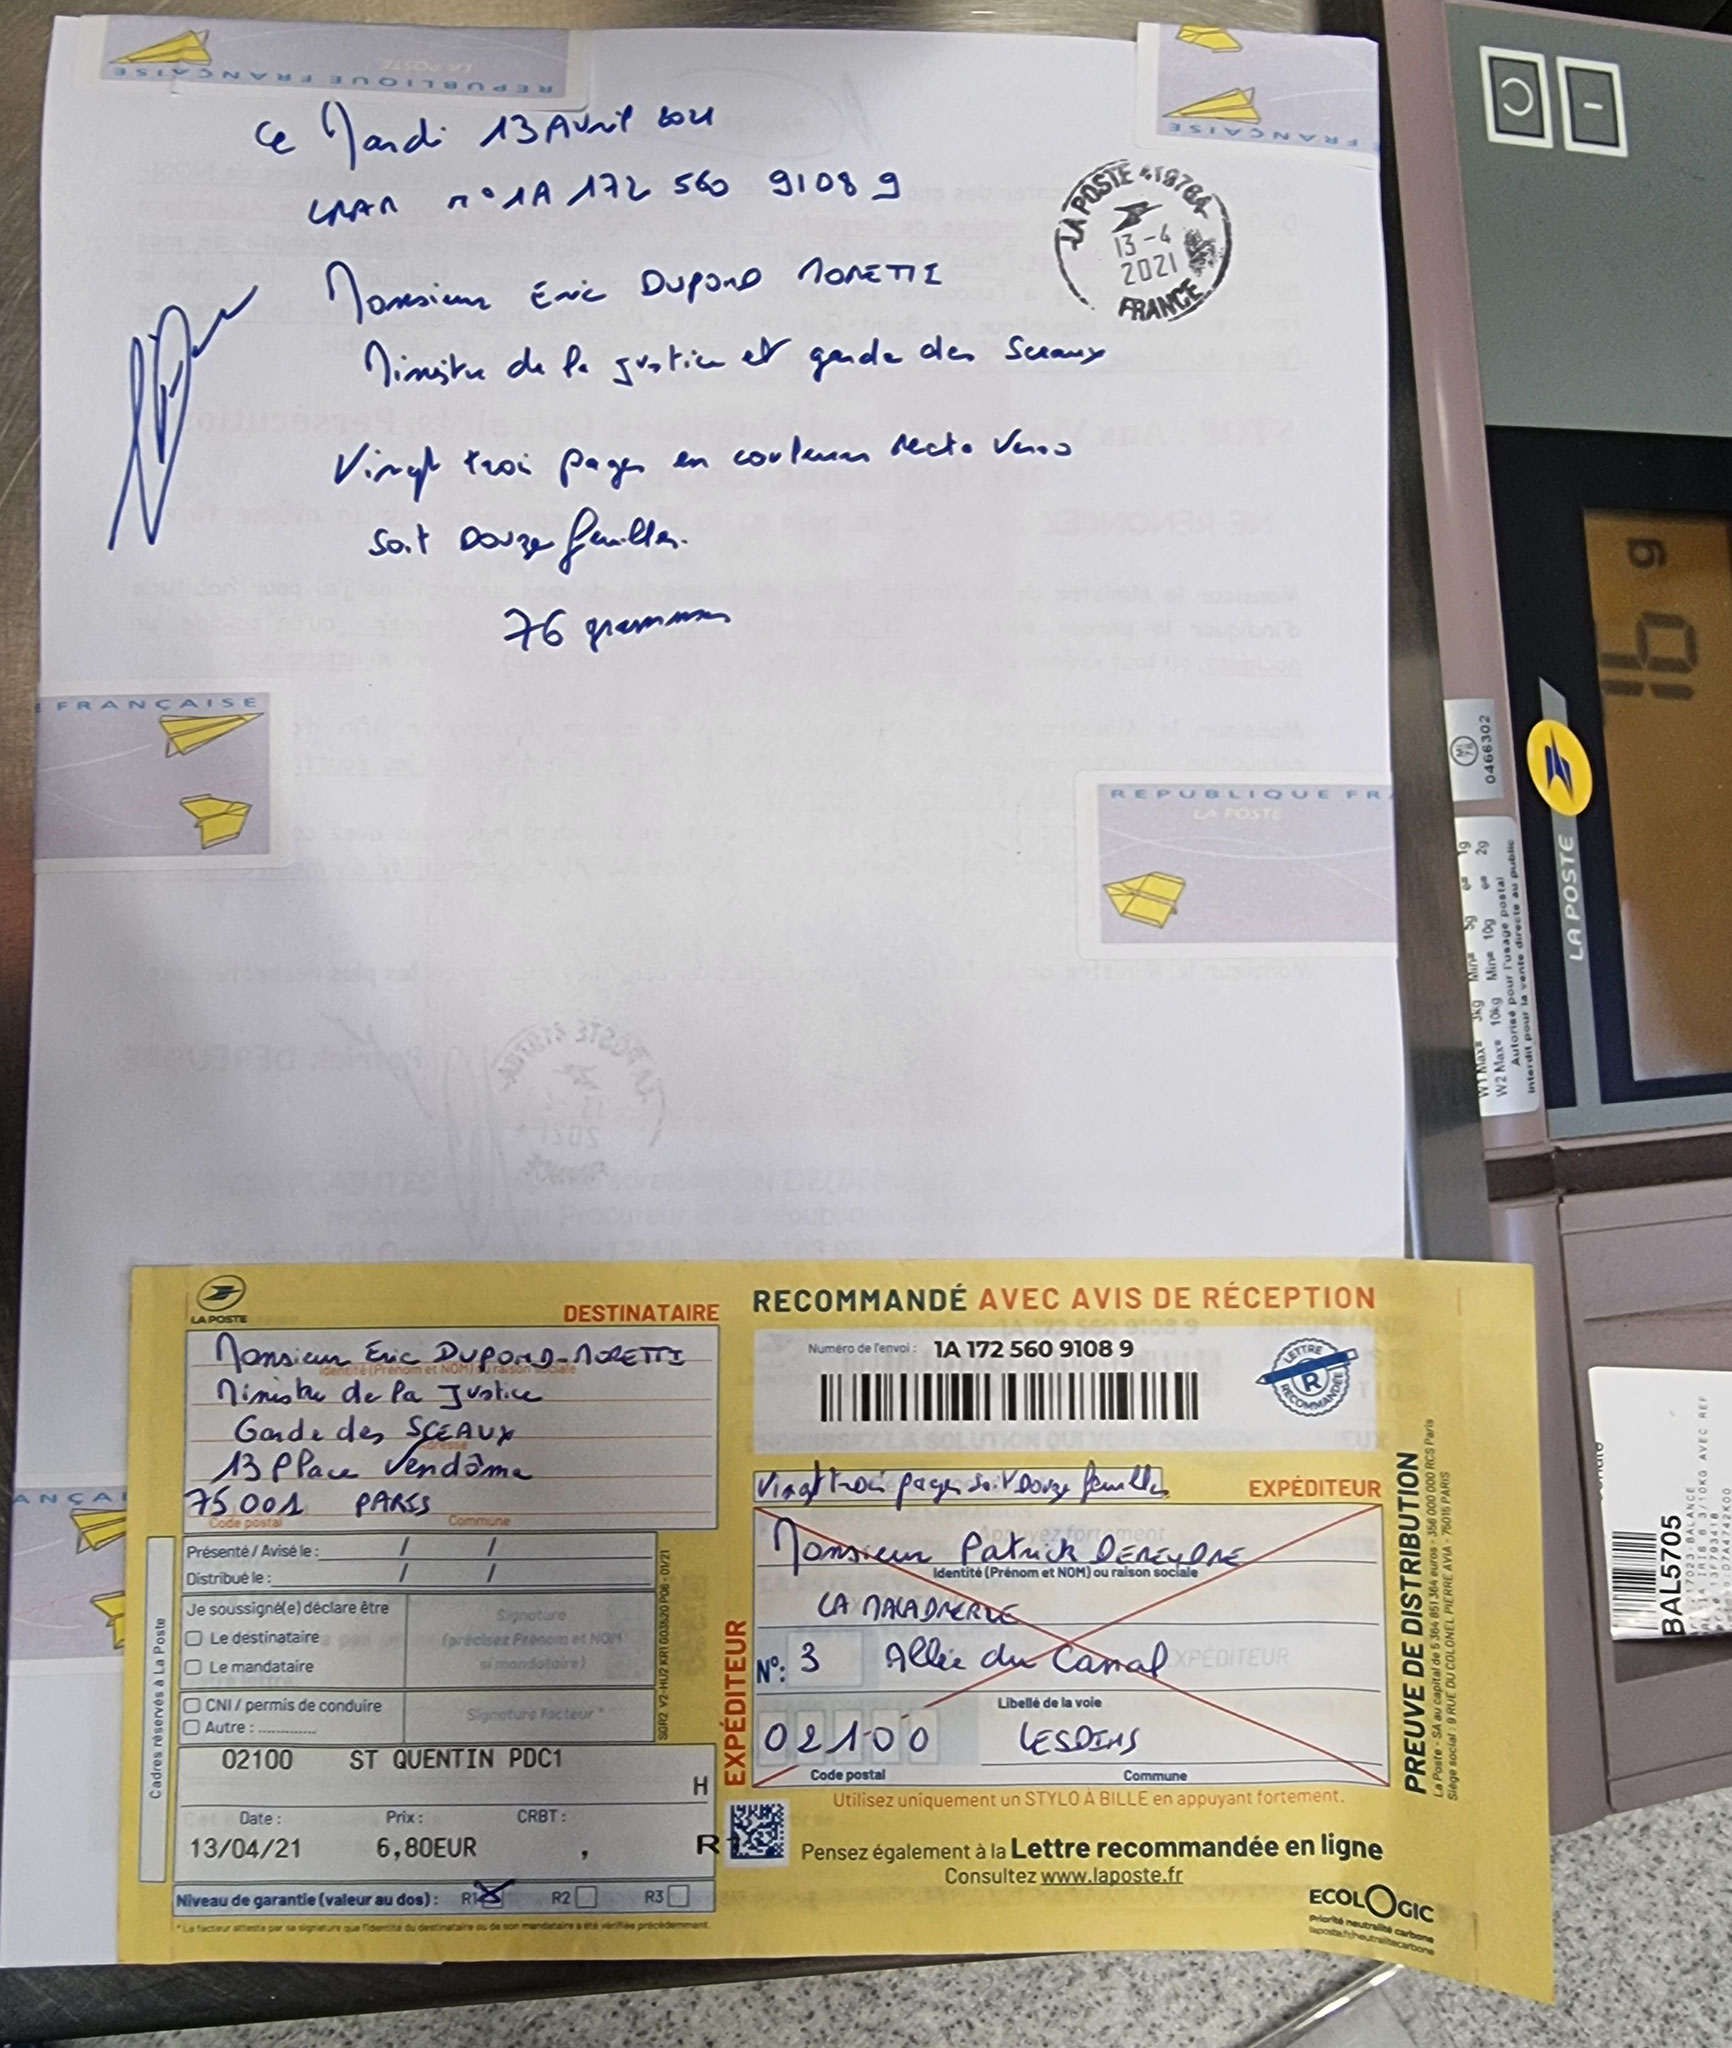 REPUBLIQUE FRANÇAISE
LA POSTE
FRANÇAISE
Ce Mardi 13 Avril 2021
LRAR n° 1A 172 560 9108 9
LA POSTE 41978A
13-4
2021
FRANCE
Monsieur Eric DUPOND MORETTI
Ministre de la justice et garde des Sceaux
Vingt troi pages en couleurs recto verso
soit Douze feuilles.
76 grammes
FRANÇAISE
REPUBLIQUE FR
LA POSTE
ANÇAI
LA POSTE
DESTINATAIRE
Monsieur Eric DUPOND-MORETTI
Identité (Prénom et NOM) ou raison sociale
Ministre de la Justice
Garde des SCEAUX
Adresse
13 Place Vendôme
75001 PARIS
Code postal Commune
Présenté / Avisé le : / /
Distribué le : / /
Je soussigné(e) déclare être
Le destinataire
Le mandataire
Signature
(précisez Prénom et NOM
si mandataire)
CNI / permis de conduire
Autre : ..............
Signature Facteur *
Cadres réservés à La Poste
02100 ST QUENTIN PDC1
H
Date : Prix : CRBT :
13/04/21 6,80EUR , R1
Niveau de garantie (valeur au dos) : R1 R2 R3
* Le facteur atteste par sa signature que l'identité du destinataire ou de son mandataire a été vérifiée précédemment.
RECOMMANDÉ AVEC AVIS DE RÉCEPTION
Numéro de l'envoi : 1A 172 560 9108 9
LETTRE
R
RECOMMANDÉE
Vingt trois pages soit Douze feuilles
EXPÉDITEUR
Monsieur Patrick DEREUDRE
Identité (Prénom et NOM) ou raison sociale
LA MALADRERIE
N°: 3 Allée du Canal
Libellé de la voie
02100 LESDINS
Code postal Commune
EXPÉDITEUR
Utilisez uniquement un STYLO À BILLE en appuyant fortement.
Pensez également à la Lettre recommandée en ligne
Consultez www.laposte.fr
ECOLOGIC
Priorité neutralité carbone
laposte.fr/neutralitecarbone
PREUVE DE DISTRIBUTION
La Poste - SA au capital de 5 364 851 364 euros - 356 000 000 RCS Paris
Siège social : 9 RUE DU COLONEL PIERRE AVIA - 75015 PARIS
g
LA POSTE
0466302
W1 Max= 3kg Min= 5g e= 1g
W2 Max= 10kg Min= 10g e= 2g
Autorisé pour l'usage postal
Interdit pour la vente directe au public
BAL5705